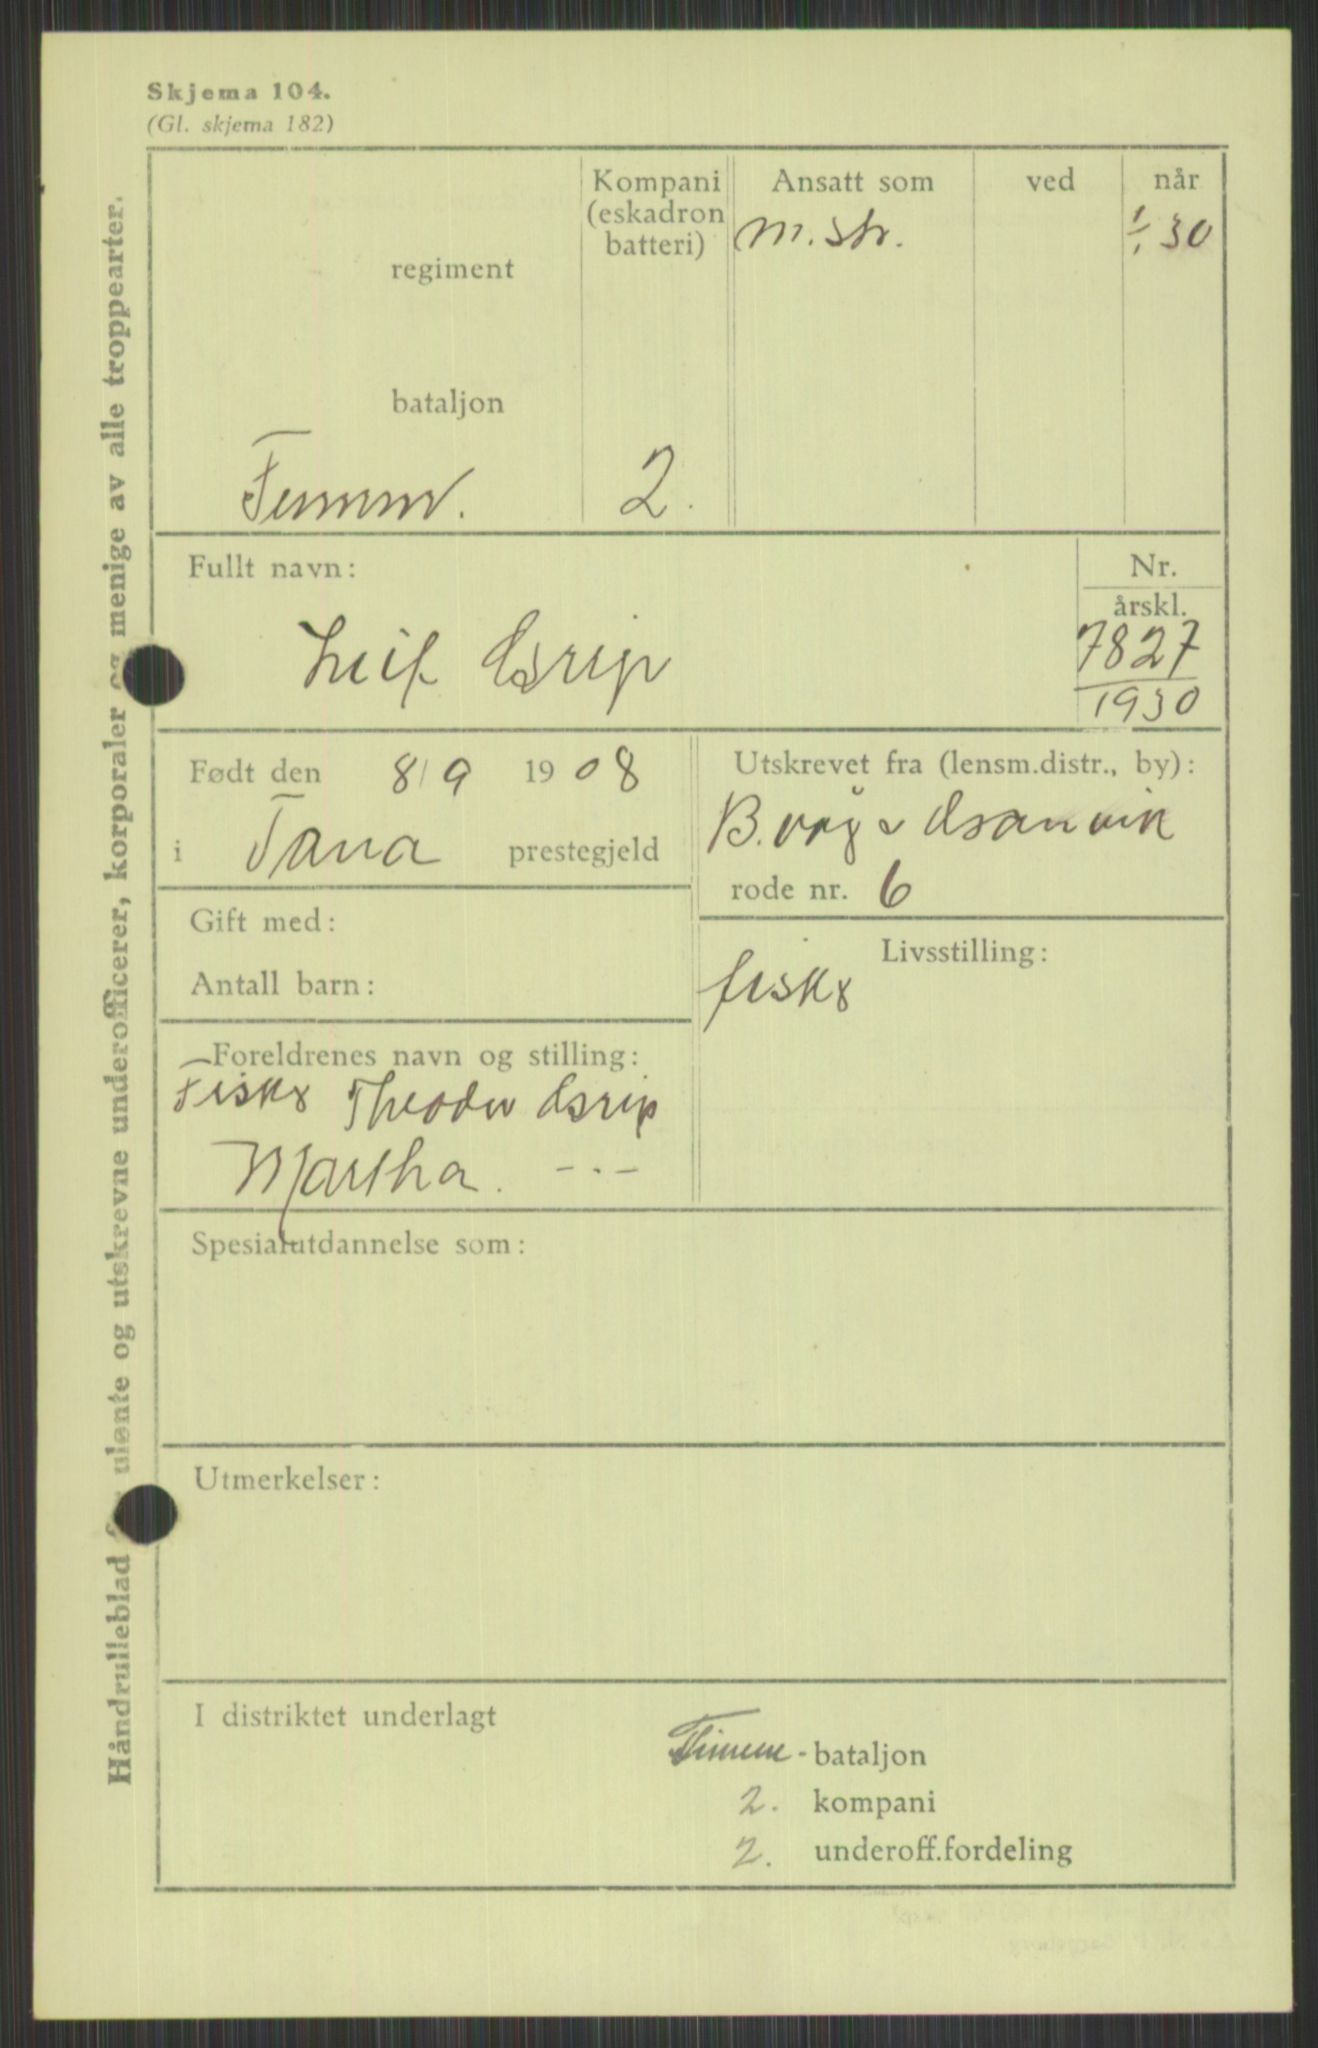 Skjema 104.
(Gl. skjema 182)
Håndrulleblad ulønte og utskrevne underofficerer, korporaler og menige av alle troppearter.
Kompani (eskadron batteri)
Ansatt som
ved
når
m. str.
1/1 30
regiment
bataljon
2.
Fullt navn:
Nr.
årskl.
Leif Grip
7827
1930
Født den 8/9 1908
i Tana prestegjeld
Utskrevet fra (lensm.distr., by):
rode nr. 6
Gift med:
Antall barn:
Livsstilling:
fisker
Foreldrenes navn og stilling:
Fisker Theodor Grip
Martha. - . -
Spesialutdannelse som:
Utmerkelser:
I distriktet underlagt
bataljon
2. kompani
2. underoff.fordeling